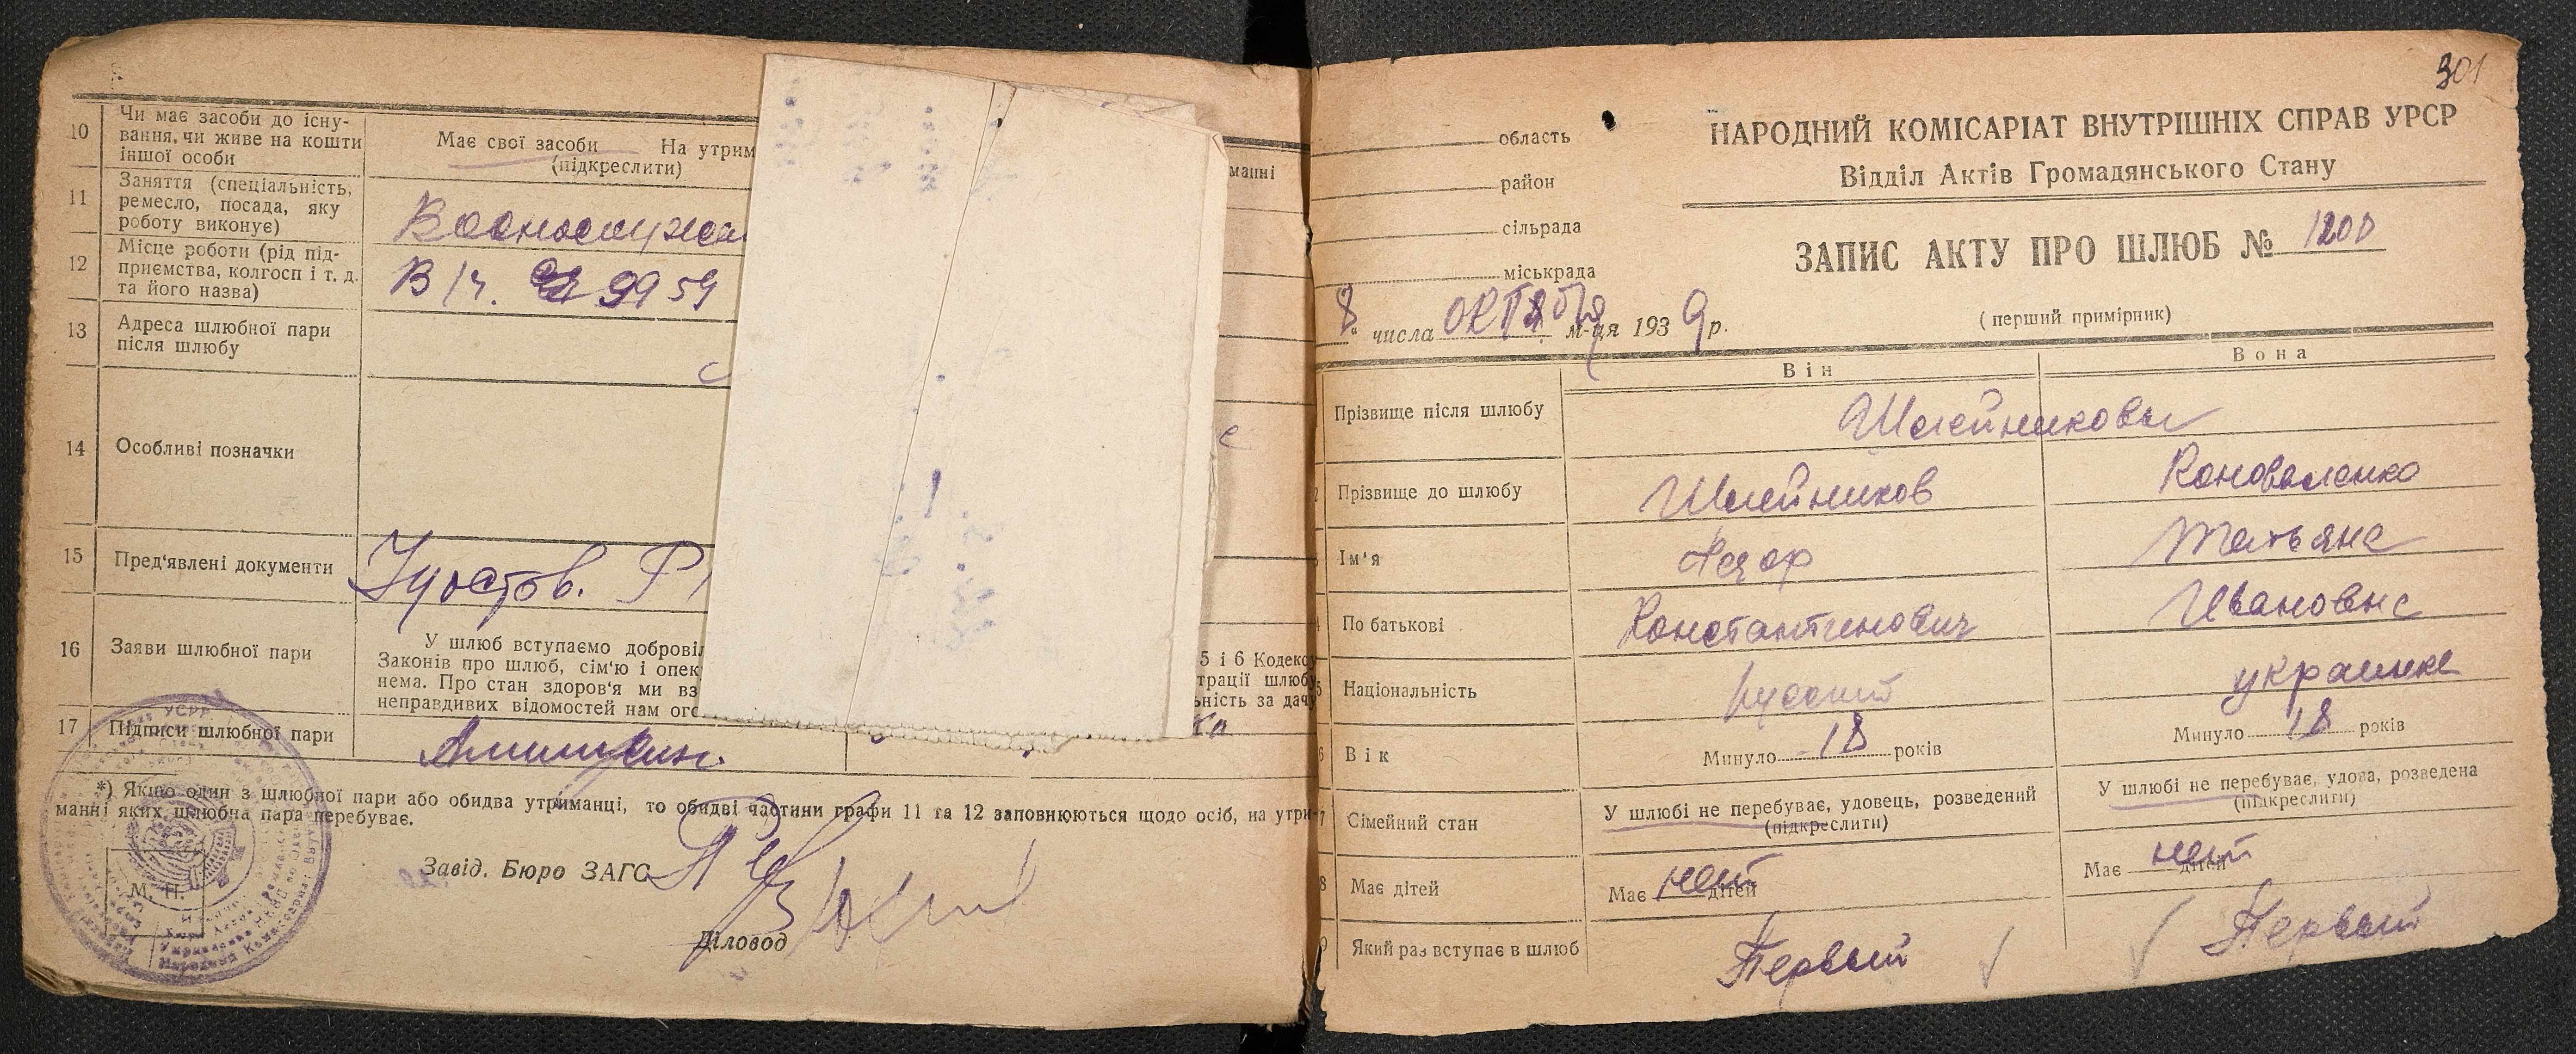 10
Чи має засоби до існу-
вання, чи живе на кошти
іншої особи
Має свої засоби На утрим
(підкреслити)
манні
11
Заняття (спеціальність,
ремесло, посада, яку
роботу виконує)
12
Місце роботи (рід під-
приємства, колгосп і т. д.
та його назва)
В/ч. 9959
13
Адреса шлюбної пари
після шлюбу
14
Особливі позначки
с
15
Пред'явлені документи
16
Заяви шлюбної пари
У шлюб вступаємо добровіл
Законів про шлюб, сім'ю і опек
нема. Про стан здоров'я ми вз
неправдивих відомостей нам ого
5 і 6 Кодексу
трації шлюбу
ьність за дачу
17
Підписи шлюбної пари
ка
*) Якщо один з шлюбної пари або обидва утриманці, то обидві частини графи 11 та 12 заповнюються щодо осіб, на утри-
манні яких шлюбна пара перебуває.
Завід. Бюро ЗАГС
М. П.
Діловод
301
область
район
сільрада
міськрада
НАРОДНИЙ КОМІСАРІАТ ВНУТРІШНІХ СПРАВ УРСР
Відділ Актів Громадянського Стану
ЗАПИС АКТУ ПРО ШЛЮБ № 1200
(перший примірник)
8" числа октября м-ця 1939 р.
Він
Вона
Прізвище після шлюбу
Шлейниковы
Прізвище до шлюбу
Шлейников
Коноваленко
Ім'я
Татьяна
По батькові
Константинович
Ивановна
Національність
русский
украинка
Вік
Минуло 18 років
Минуло 18 років
Сімейний стан
У шлюбі не перебуває, удовець, розведений
(підкреслити)
У шлюбі не перебуває, удова, розведена
(підкреслити)
8
Має дітей
Має нет дітей
Має нет дітей
Який раз вступає в шлюб
Первый
Первый